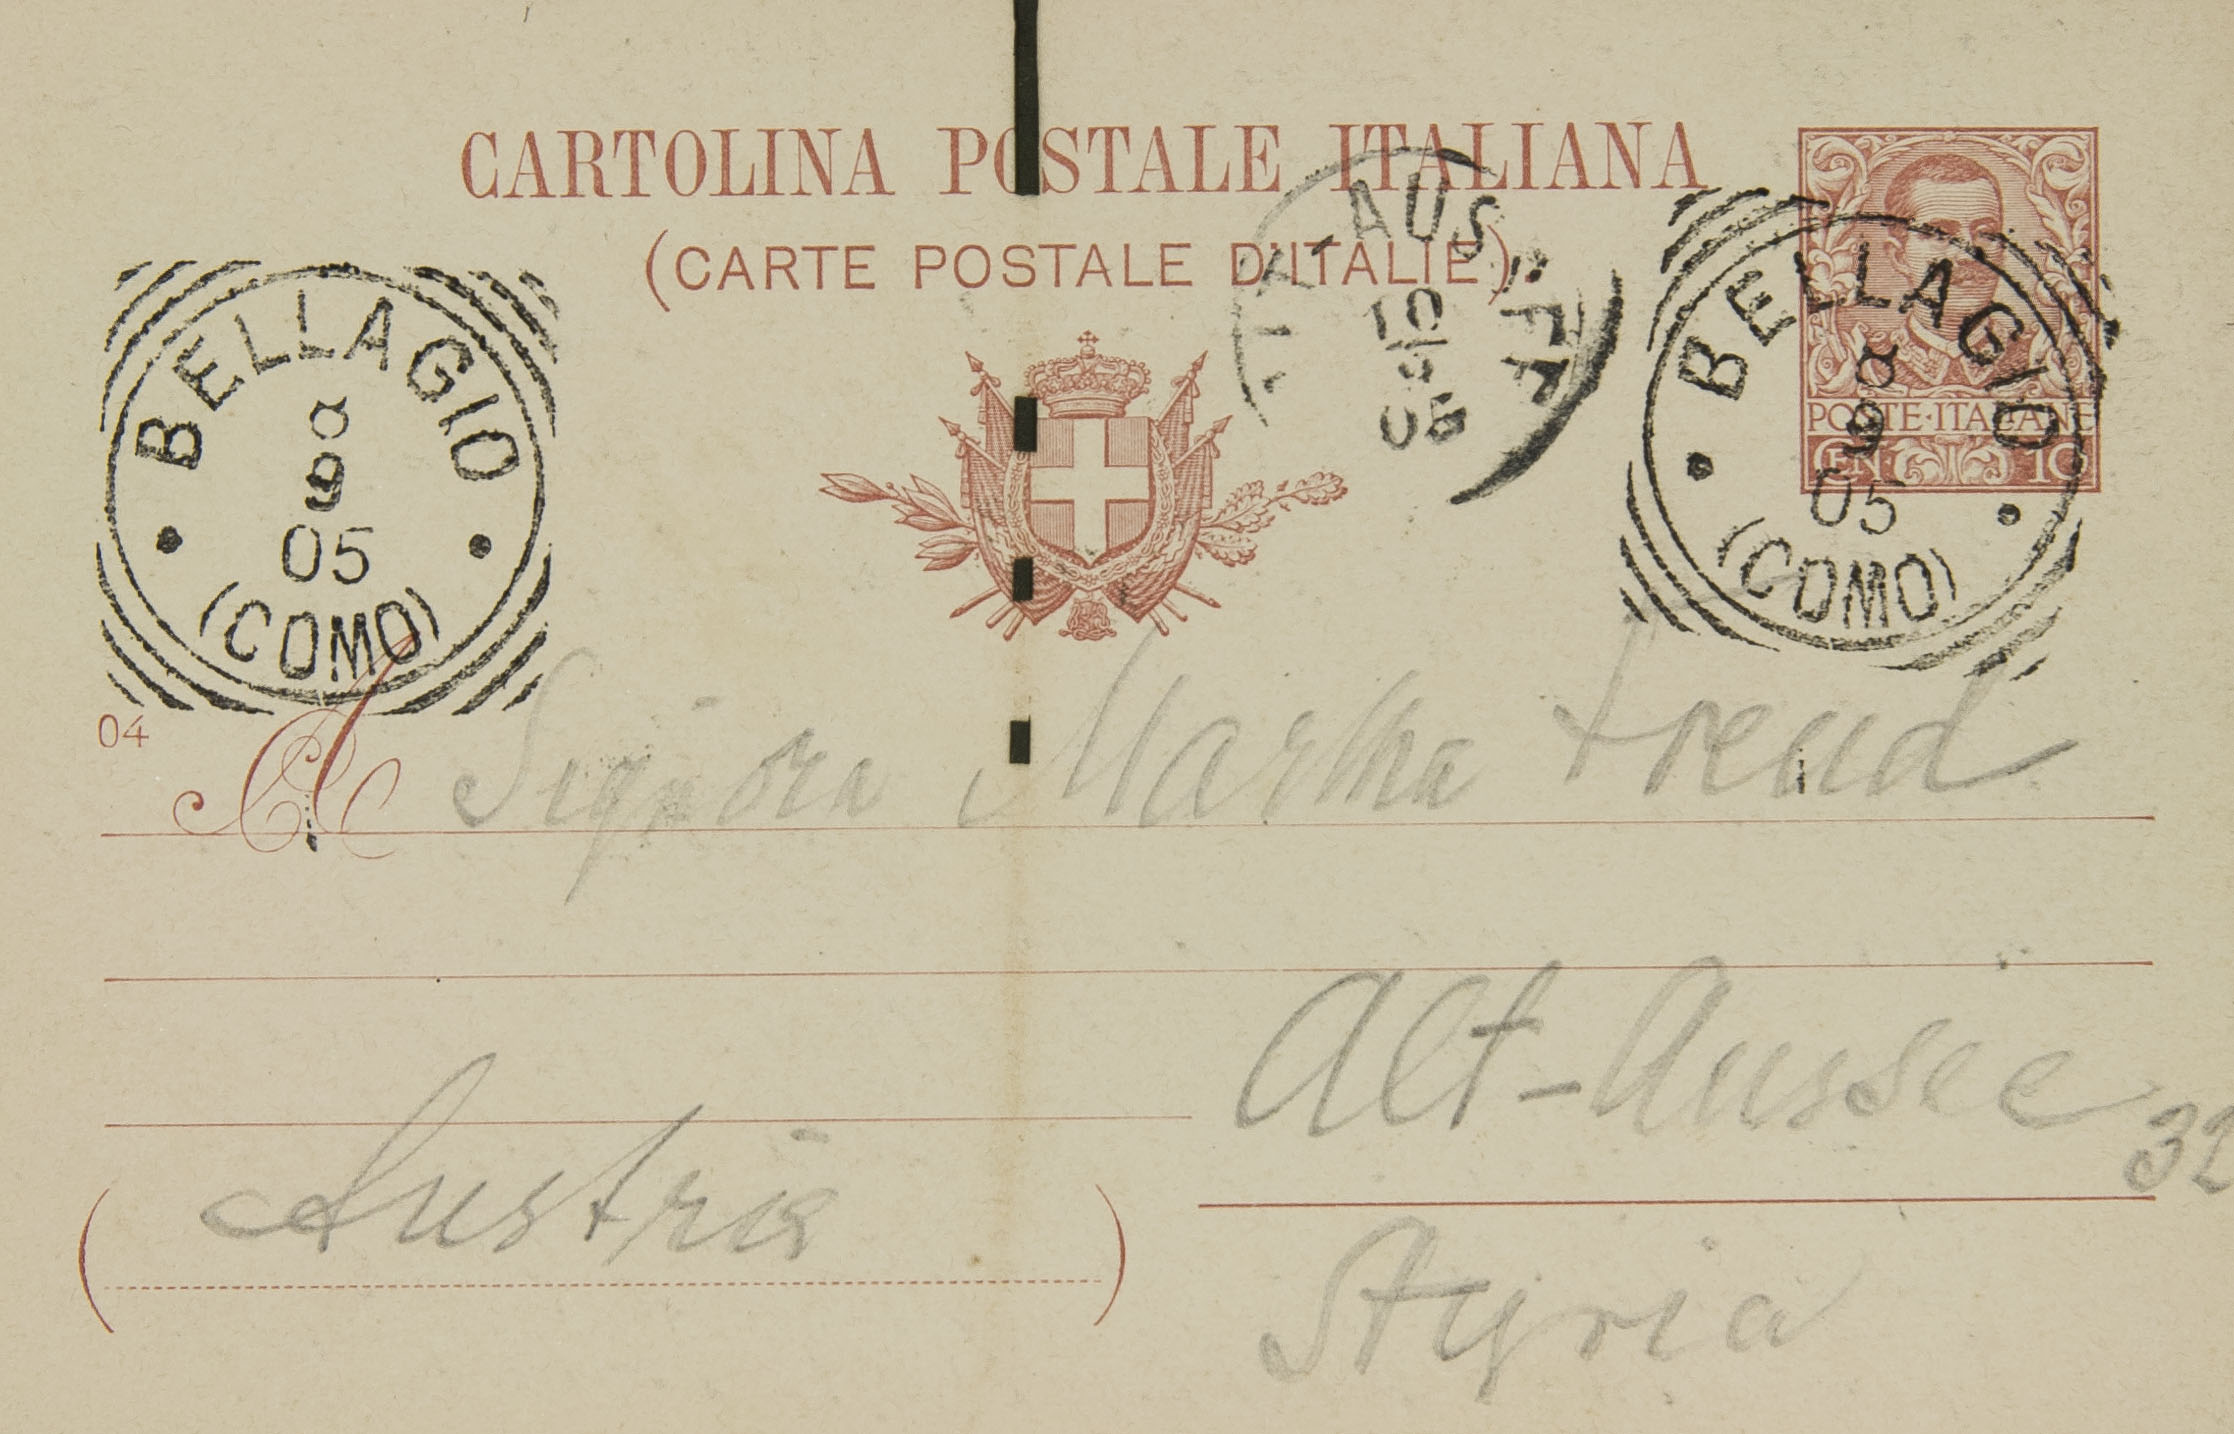 CARTOLINA POSTALE ITALIANA
(CARTE POSTALE D'ITALIE)
BELLAGIO
8
9
05
(COMO)
ALT-AUSSEE
10
9
05
BELLAGIO
8
9
05
(COMO)
POSTE·ITALIANE
CEN. 10
04
A Signora Martha Freud
Alt-Aussee
32
Austria
Styria